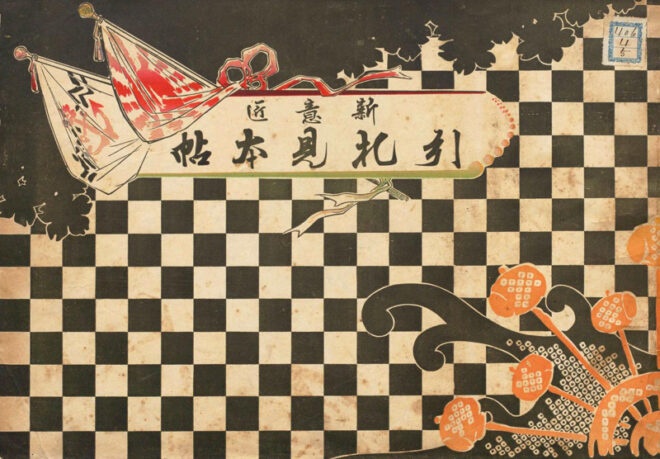 新意匠
引札見本帖